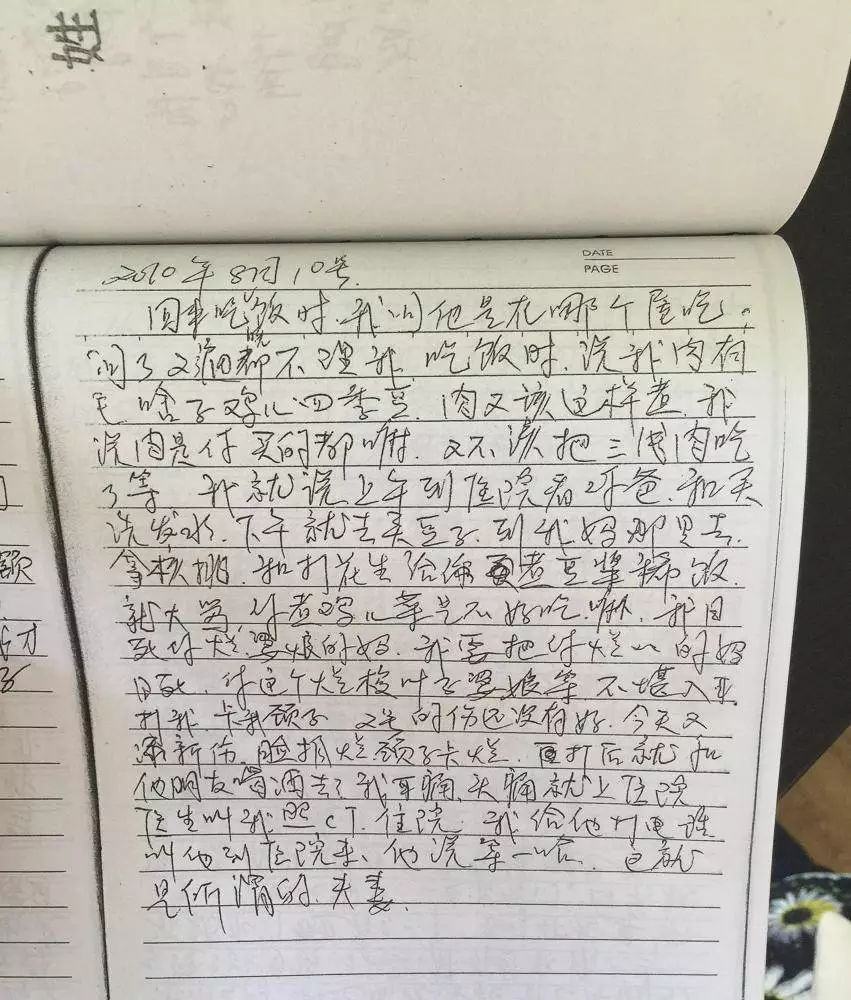 姓
DATE
PAGE
2010年8月10号.
回来吃饭时.我问他是在哪个屋吃。
问了又问都不理我.吃饭时.说我肉有
毛.啥子鸡儿四季豆.肉又该这样煮.我
说肉是你买的都嘛.又不该把三线肉吃
了等.我就说上午到住院看你爸.和买
洗发水.下午就去卖豆子.到我妈那里去.
拿核桃.和打花生给你煮豆浆稀饭.
就大骂.你煮鸡儿菜是不好吃.嘛.我日
死你烂婆娘的妈.我要把你烂的妈
日死.你这个烂婆娘等不堪入耳
打我.卡我颈子.的伤还没有好.今天又
添新伤.脸抓烂.颈子卡烂.打后就和
他朋友喝酒去了我耳痛.头痛就上住院
医生叫我照CT.住院.我给他打电话
叫他到住院来、他说等一哈.这就
是所谓的.夫妻.
额
才